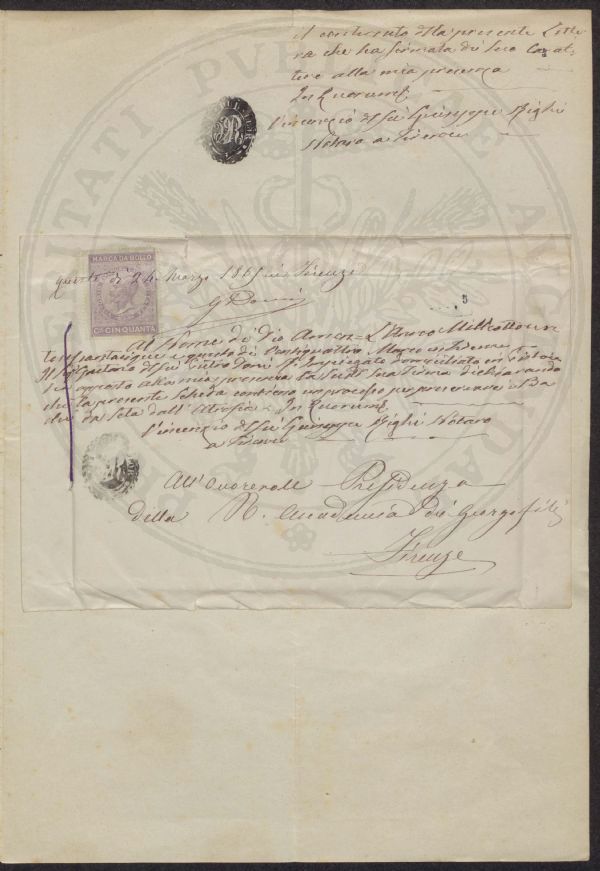 il contenuto della presente Lette
ra che ha firmata di suo Carat
tere alla mia presenza
In Quorum
Vincenzio del fu Giuseppe Righi
Notaro a Firenze
MARCA DA BOLLO
Ct CINQUANTA
questo dì 24 Marzo 186 in Firenze
G Dorini
5
Al Nome di Dio Amen = L'Anno Milleottocen
to e questo dì Ventiquattro Marzo in Firenze
Il Gaetano del fu Pietro Impiegato domiciliato in
apposto alla mia presenza la sua firma dichiarando
che la presente Scheda contiene un processo per preservare i Ba
chi da Seta dall'Atrofia - In Quorum
Vincenzio del fu Giuseppe Righi Notaro
a Firenze
All'Onorevole Presidenza
della R. Accademia dei Georgofili
Firenze